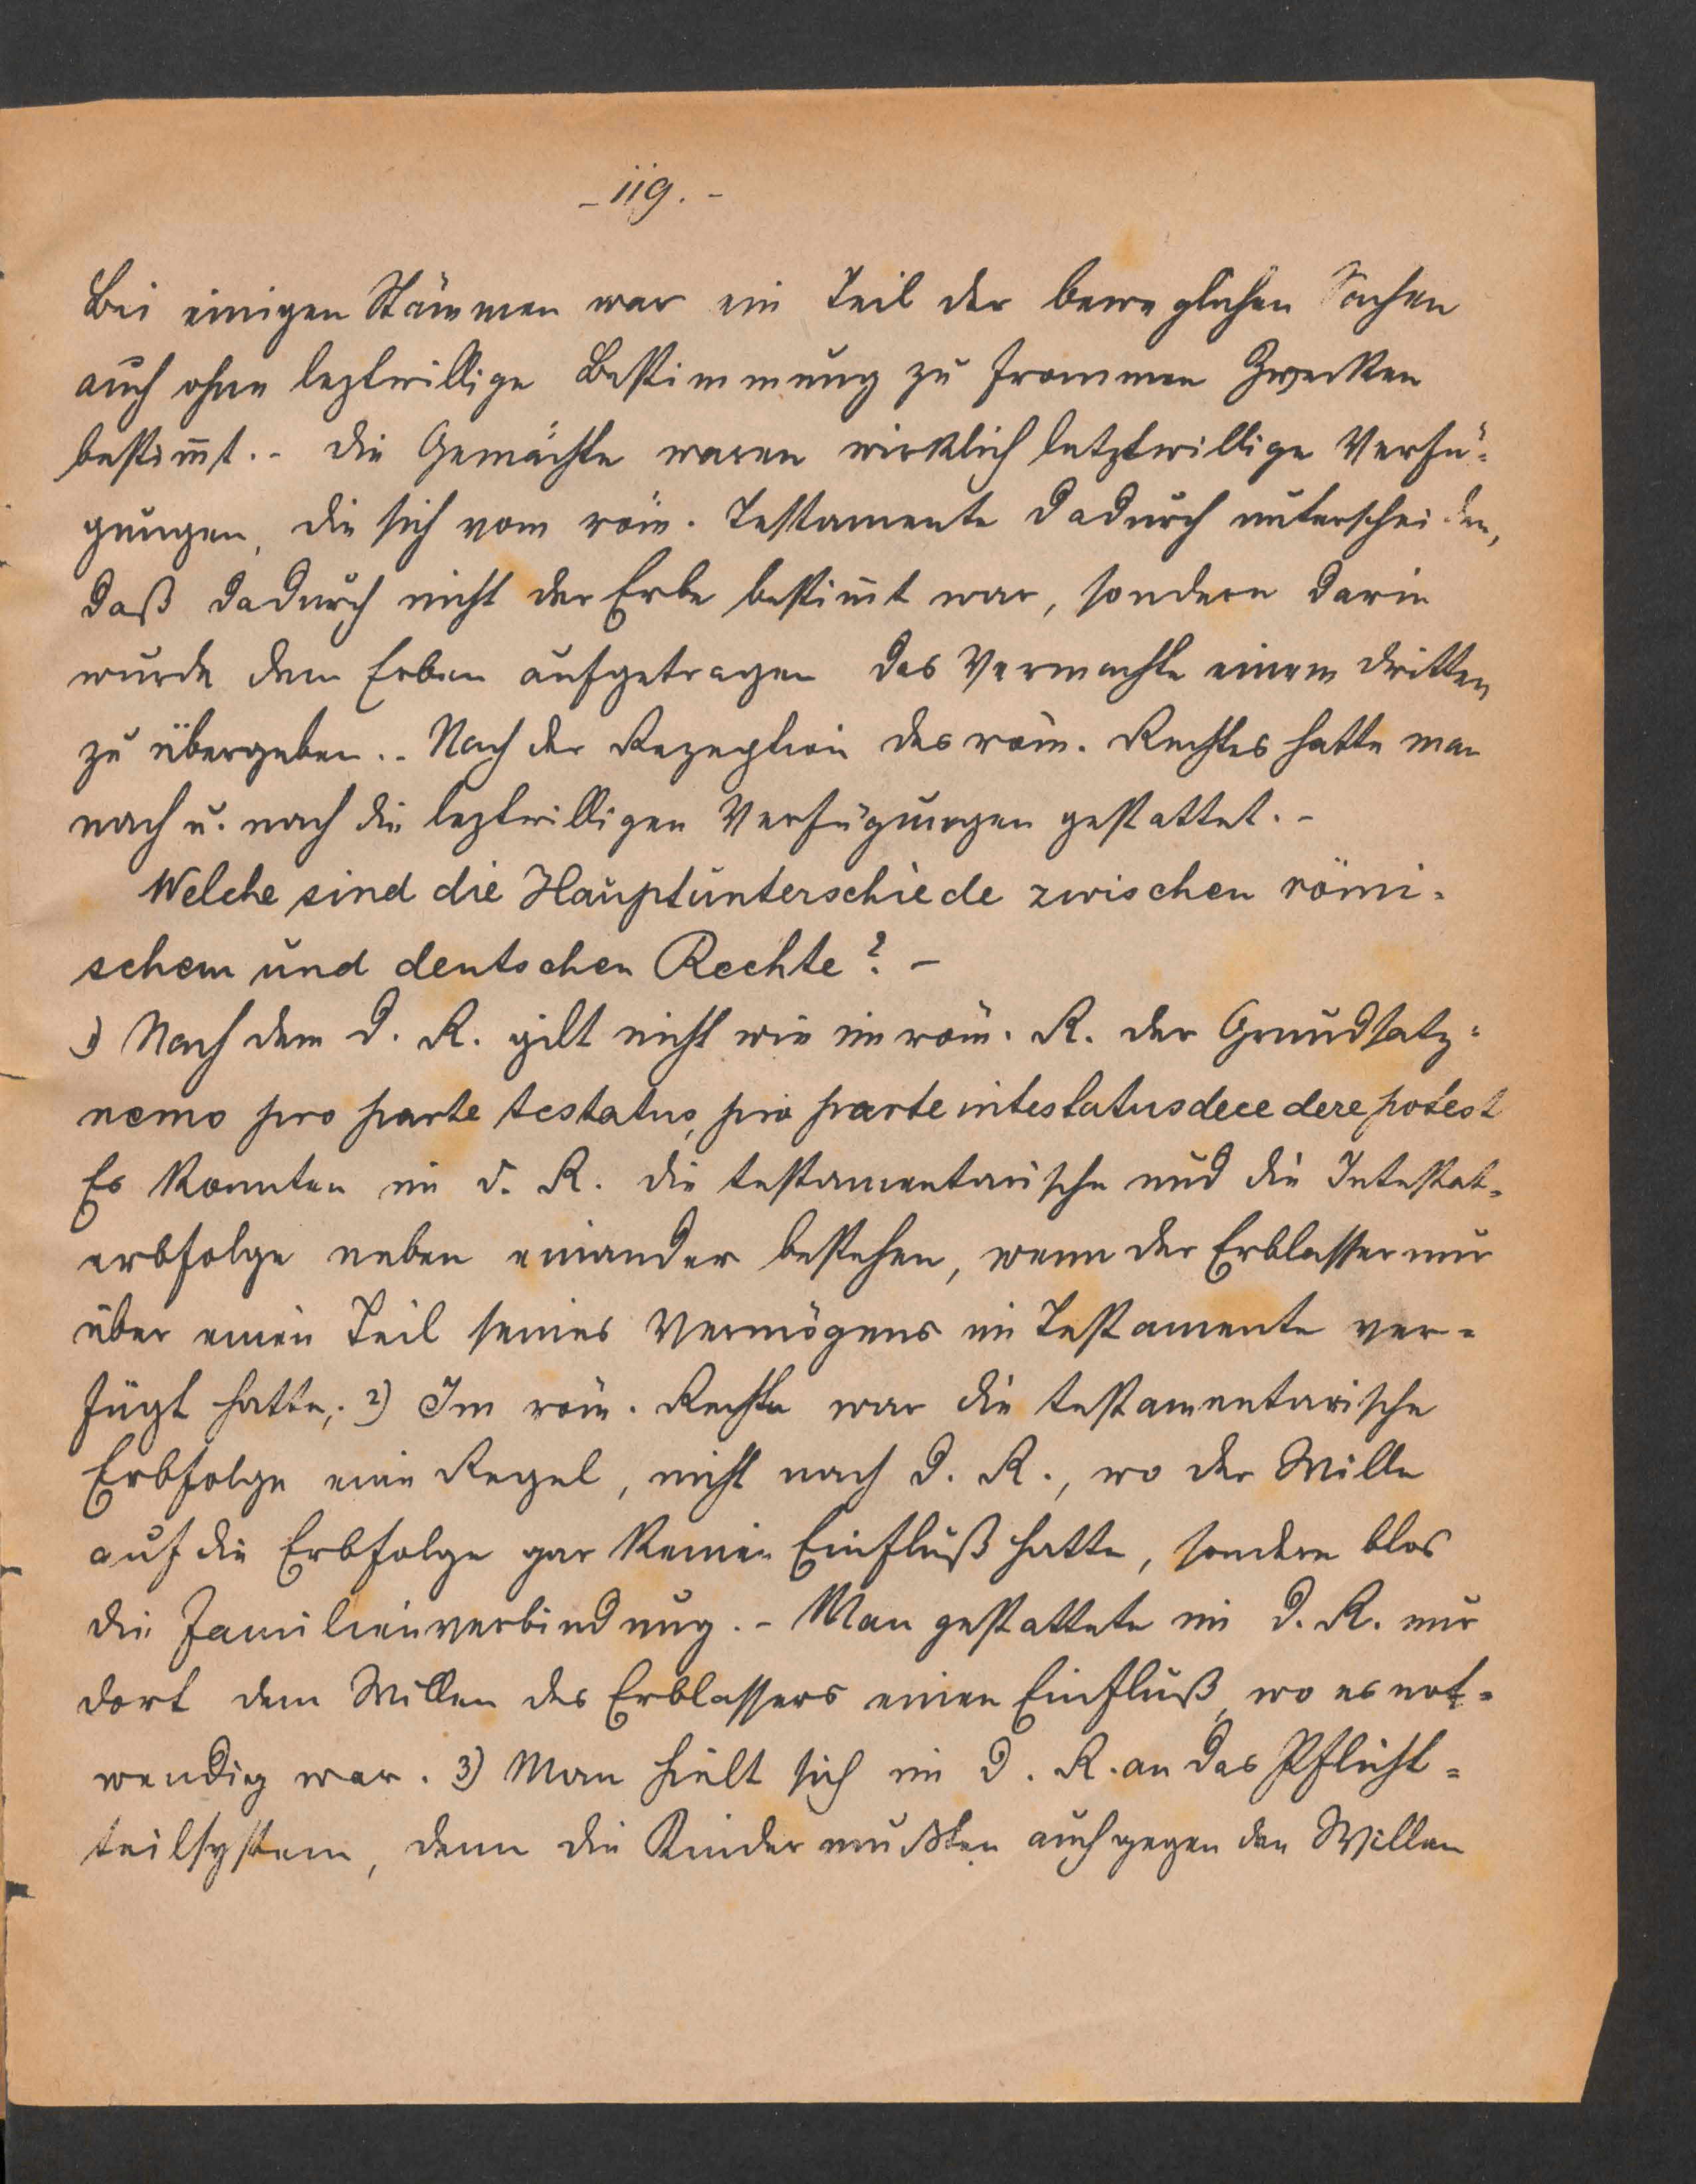 - 119. -
Bei einigen Stämmen war ein Teil der beweglichen Sachen
auch ohne leztwillige Bestimmung zu frommen Zwecken
bestim̅t. - Die Gemächte waren wirklich letztwillige Verfü-
gungen, die sich vom röm. Testamente dadurch unterscheiden,
daß dadurch nicht der Erbe bestim̅t war, sondern darin
wurde dem Erben aufgetragen das Vermachte einem dritten
zu übergeben. - Nach der Rezeption des röm. Rechtes hatte man
nach u. nach die leztwilligen Verfügungen gestattet. -
Welche sind die Hauptunterschiede zwischen römi-
schem und deutschen Rechte? -
1) Nach dem d. R. gilt nicht wie im röm. R. der Grundsatz:
nemo pro parte testatus, pro parte intestatus decedere potest
Es konnten im d. R. die testamentarische und die Intestat-
erbfolge neben einander bestehen, wenn der Erblasser nur
über einen Teil seines Vermögens im Testamente ver-
fügt hatte; 2) Im röm. Rechte war die testamentarische
Erbfolge eine Regel, nicht nach d. R., wo der Wille
auf die Erbfolge gar keinen Einfluß hatte, sondern blos
die Familienverbindung. - Man gestattete im d. R. nur
dort dem Willen des Erblassers einen Einfluß, wo es not-
wendig war. 3) Man hielt sich im d. R. an das Pflicht-
teilsystem, denn die Kinder mußten auch gegen den Willen